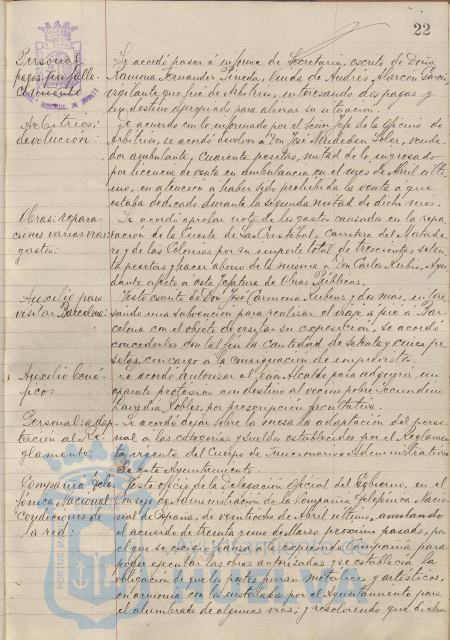 22
Personal
pagas por falle-
cimiento
Se acordó pasar á informe de Secretaria, escrito de Doña
Ramona Fernandez Pineda, viuda de Andrés Alarcón García,
vigilante que fué de Arbitrios, interesando dos pagas y
un destino apropiado para aliviar su situación.
Arbitrios:
devolución:
De acuerdo con lo informado por el Señor Jefe de la Oficina de
Arbitrios, se acordó devolver a Don José Soler, vende-
dor ambulante, cuarenta pesetas, mitad de lo ingresado
por licencia de venta en ambulancia en el mes de Abril últi-
mo, en atención a haber sido prohibida la venta a que
estaba dedicado durante la segunda mitad de dicho mes.
Obras: repara-
ciones varias vías:
gastos:
Se acordó aprobar nota de los gastos causados en la repa-
ración de la Fuente de San Cristóbal, Carretera del Matade-
ro y de las Colonias por su importe total de trescientas seten-
ta pesetas y hacer abono de la misma a Don Carlos Rubio, Ayu-
dante afecto a esta Jefatura de Obras Públicas.
Auxilio para
visitar Barcelona:
Visto escrito de Don José Carmona Rubens y dos mas, intere-
sando una subvención para realizar el viaje a pie a Bar-
celona con el objeto de visitar su exposición, se acordó
concederles con tal fin la cantidad de setenta y cinco pe-
setas, con cargo a la consignación de imprevistos.
Auxilio Econó-
mico:
Se acordó autorizar al Señor Alcalde para adquirir un
aparato protésico con destino al vecino pobre Secundino
Robles, por prescripción facultativa.
Personal: adap-
tación al Re-
glamento:
Se acordó dejar sobre la mesa la adaptación del perso-
nal a las categorías y sueldos establecidos por el Reglamen-
to vigente del Cuerpo de Funcionarios Administrativos
de este Ayuntamiento.
Compañía Tele-
fónica Nacional
Condiciones de
la red:
Visto oficio de la Delegación Oficial del Gobierno, en el
Consejo de Administración de la Compañía Telefónica Nacio-
nal de España, de veintiocho de Abril último, anulando
el acuerdo de treinta y uno de Marzo próximo pasado, por
el que se exigió fianza a la expresada Compañía para
poder ejecutar las obras autorizadas y se establecía la
obligación de que los postes fueran metálicos y artísticos,
en armonía con los instalados por el Ayuntamiento para
el alumbrado de algunas vías; y resolviendo que dichas